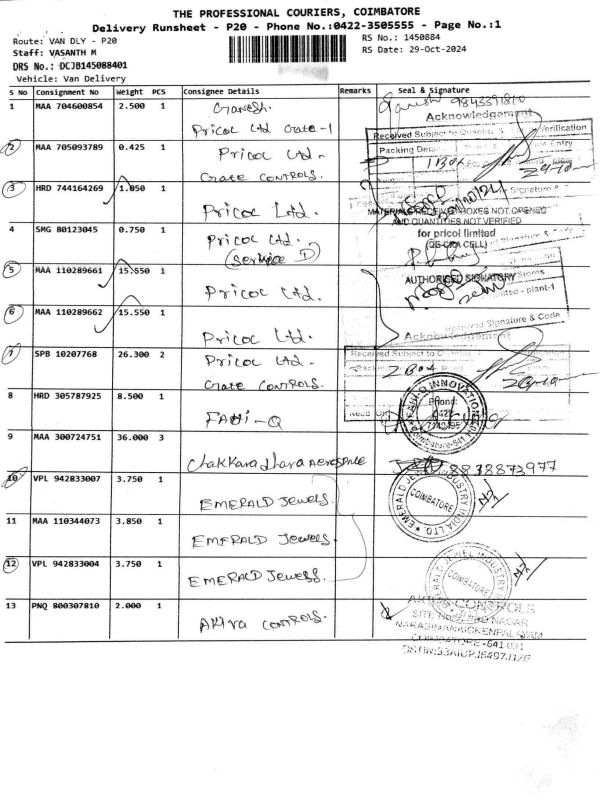 THE PROFESSIONAL COURIERS, COIMBATORE
Delivery Runsheet - P20 - Phone No.:0422-3505555 - Page No.:1
Route: VAN DLY - P20
RS No.: 1450884
Staff: VASANTH M
RS Date: 29-Oct-2024
DRS No.: DCJB145088401
Vehicle: Van Delivery
S No Consignment No Weight PCS Consignee Details Remarks Seal & Signature
1 MAA 704600854 2.500 1 Ganesh.
Pricol Ltd Gate-1
Ganesh 9843391810
Acknowledgement
2 MAA 705093789 0.425 1 Pricol Ltd-
Gate CONTROLS.
Received Subject to Verification
Packing Entry
1 Box
3 HRD 744164269 1.850 1
Pricol Ltd.
MATERIALS RECEIVED BOXES NOT OPENED
AND QUANTITIES NOT VERIFIED
4 SMG 80123045 0.750 1 Pricol Ltd.
(Service D)
for pricol limited
Signature & Code
AUTHORISED SIGNATORY
5 MAA 110289661 15.550 1
Pricol Ltd.
Stores
plant-1
6 MAA 110289662 15.550 1
Pricol Ltd.
Signature & Code
Acknowledgement
7 SPB 10207768 26.300 2 Pricol Ltd-
Gate CONTROLS.
Received Subject to
2 Box
8 HRD 305787925 8.500 1
FABI-Q
INNOVATION
Phone:
0422
Coimbatore-641
9 MAA 300724751 36.000 3
Chakkaradhara Aerospace
8838873977
10 VPL 942833007 3.750 1
EMERALD Jewels.
EMERALD JEWEL INDUSTRY INDIA LTD.
COIMBATORE
11 MAA 110344073 3.850 1
EMERALD Jewels.
12 VPL 942833004 3.750 1
EMERALD Jewels.
EMERALD JEWEL INDUSTRY
COIMBATORE
13 PNQ 800307810 2.000 1
Akira CONTROLS.
AKIRA CONTROLS
NAGAR
NARASIMANAICKENPALAYAM
COIMBATORE-641 031